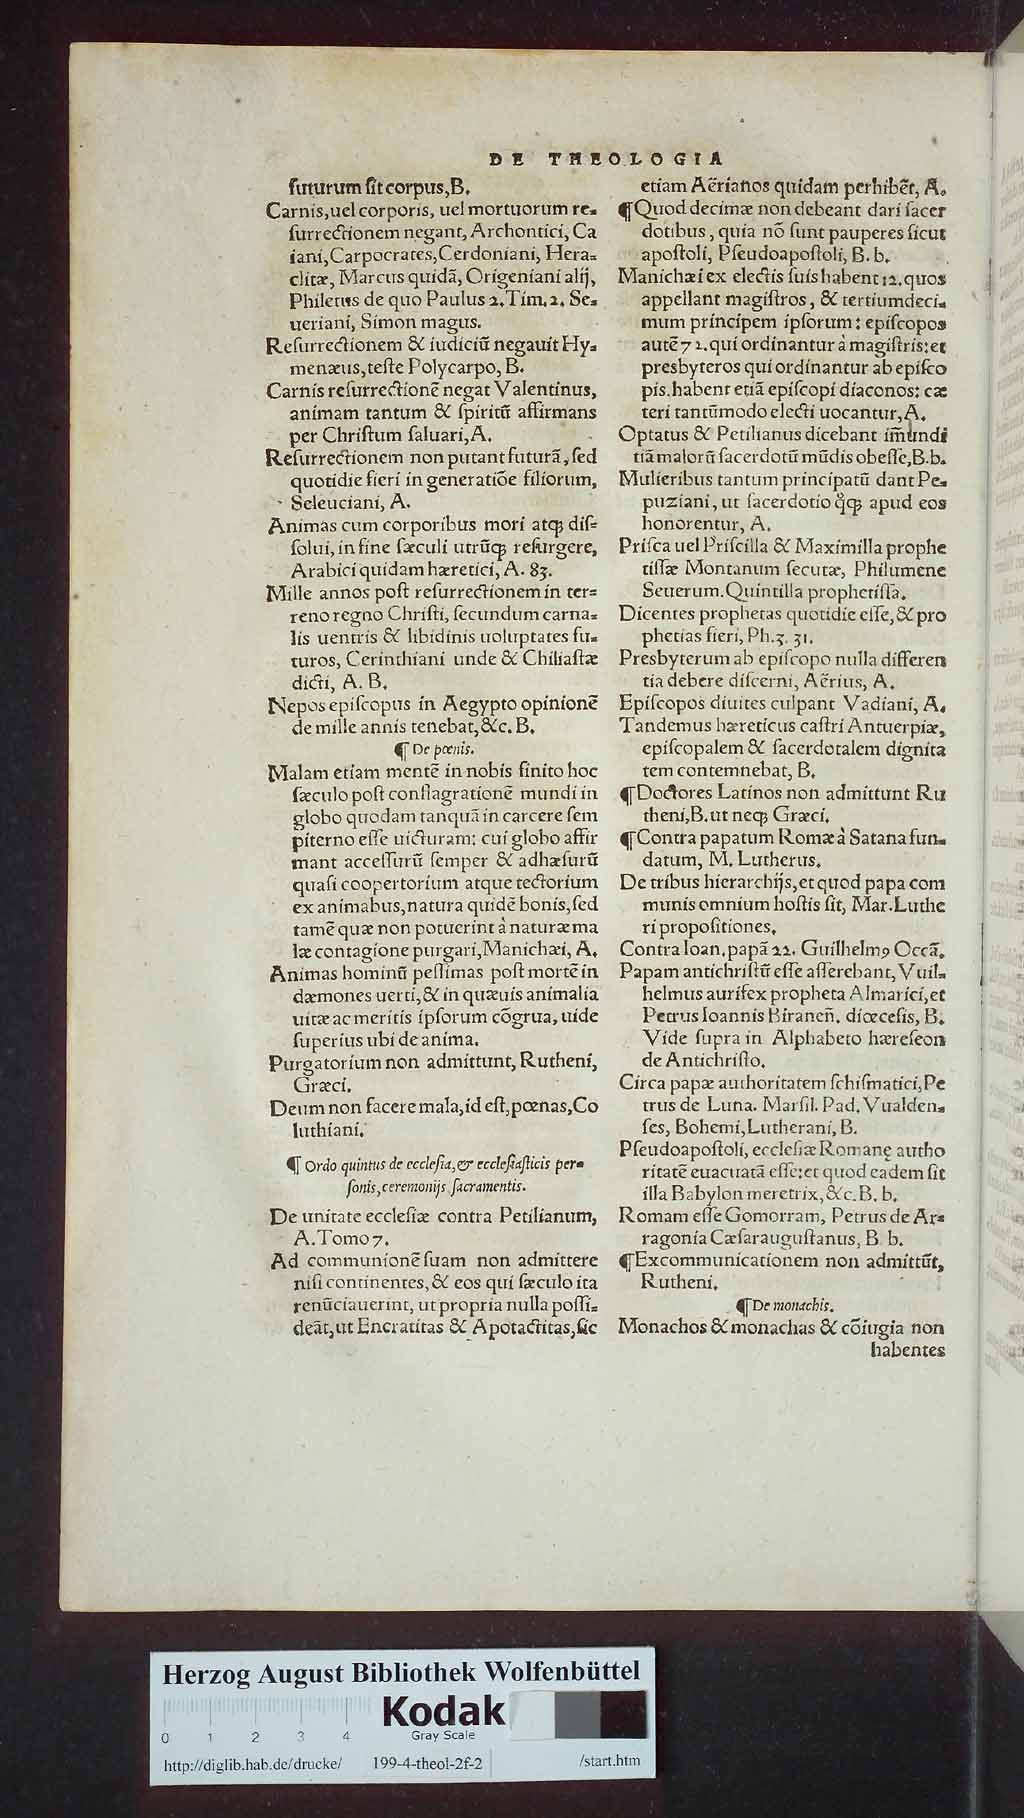 DE THEOLOGIA
futurum sit corpus, B.
Carnis, uel corporis, uel mortuorum re-
surrectionem negant, Archontici, Ca
iani, Carpocrates, Cerdoniani, Hera-
clitæ, Marcus quidã, Origeniani alij,
Philetus de quo Paulus 2. Tim. 2. Se-
ueriani, Simon magus.
Resurrectionem & iudiciũ negauit Hy-
menæus, teste Polycarpo, B.
Carnis resurrectionẽ negat Valentinus,
animam tantum & spiritũ affirmans
per Christum saluari, A.
Resurrectionem non putant futurã, sed
quotidie fieri in generatiõe filiorum,
Seleuciani, A.
Animas cum corporibus mori atq; dis-
solui, in fine sæculi utrũq; resurgere,
Arabici quidam hæretici, A. 83.
Mille annos post resurrectionem in ter-
reno regno Christi, secundum carna-
lis uentris & libidinis uoluptates fu-
turos, Cerinthiani unde & Chiliastæ
dicti, A. B.
Nepos episcopus in Aegypto opinionẽ
de mille annis tenebat, &c. B.
¶ De pœnis.
Malam etiam mentẽ in nobis finito hoc
sæculo post conflagrationẽ mundi in
globo quodam tanquã in carcere sem
piterno esse uicturam: cui globo affir
mant accessurũ semper & adhæsurũ
quasi coopertorium atque tectorium
ex animabus, natura quidẽ bonis, sed
tamẽ quæ non potuerint à naturæ ma
læ contagione purgari, Manichæi, A.
Animas hominũ pessimas post mortẽ in
dæmones uerti, & in quæuis animalia
uitæ ac meritis ipsorum cõgrua, uide
superius ubi de anima.
Purgatorium non admittunt, Rutheni,
Græci.
Deum non facere mala, id est, pœnas, Co
luthiani.
¶ Ordo quintus de ecclesia, & ecclesiasticis per-
sonis, ceremonijs sacramentis.
De unitate ecclesiæ contra Petilianum,
A. Tomo 7.
Ad communionẽ suam non admittere
nisi continentes, & eos qui sæculo ita
renũciauerint, ut propria nulla possi-
deãt, ut Encratitas & Apotactitas, sic
etiam Aërianos quidam perhibẽt, A.
¶ Quod decimæ non debeant dari sacer
dotibus, quia nõ sunt pauperes sicut
apostoli, Pseudoapostoli, B. b.
Manichæi ex electis suis habent 12. quos
appellant magistros, & tertiumdeci-
mum principem ipsorum: episcopos
autẽ 72. qui ordinantur à magistris: et
presbyteros qui ordinantur ab episco
pis. habent etiã episcopi diaconos: cæ
teri tantũmodo electi uocantur, A.
Optatus & Petilianus dicebant im̃undi
tiã malorũ sacerdotũ mũdis obesse, B. b.
Mulieribus tantum principatũ dant Pe-
puziani, ut sacerdotio q̃q; apud eos
honorentur, A.
Prisca uel Priscilla & Maximilla prophe
tissæ Montanum secutæ, Philumene
Seuerum. Quintilla prophetissa.
Dicentes prophetas quotidie esse, & pro
phetias fieri, Ph. 3. 31.
Presbyterum ab episcopo nulla differen
tia debere discerni, Aërius, A.
Episcopos diuites culpant Vadiani, A.
Tandemus hæreticus castri Antuerpiæ,
episcopalem & sacerdotalem dignita
tem contemnebat, B.
¶ Doctores Latinos non admittunt Ru
theni, B. ut neq; Græci.
¶ Contra papatum Romæ à Satana fun-
datum, M. Lutherus.
De tribus hierarchijs, et quod papa com
munis omnium hostis sit, Mar. Luthe
ri propositiones.
Contra Ioan. papã 22. Guilhelmꝰ Occã.
Papam antichristũ esse asserebant, Vuil-
helmus aurifex propheta Almarici, et
Petrus Ioannis Biranen̄. diœcesis, B.
Vide supra in Alphabeto hæreseon
de Antichristo.
Circa papæ authoritatem schismatici, Pe
trus de Luna. Marsil. Pad. Vualden-
ses, Bohemi, Lutherani, B.
Pseudoapostoli, ecclesiæ Romanę autho
ritatẽ euacuatã esse: et quod eadem sit
illa Babylon meretrix, &c. B. b.
Romam esse Gomorram, Petrus de Ar-
ragonia Cæsaraugustanus, B. b.
¶ Excommunicationem non admittũt,
Rutheni.
¶ De monachis.
Monachos & monachas & cõiugia non
habentes
Herzog August Bibliothek Wolfenbüttel
Kodak
Gray Scale
0 1 2 3 4
http://diglib.hab.de/drucke/ 199-4-theol-2f-2 /start.htm